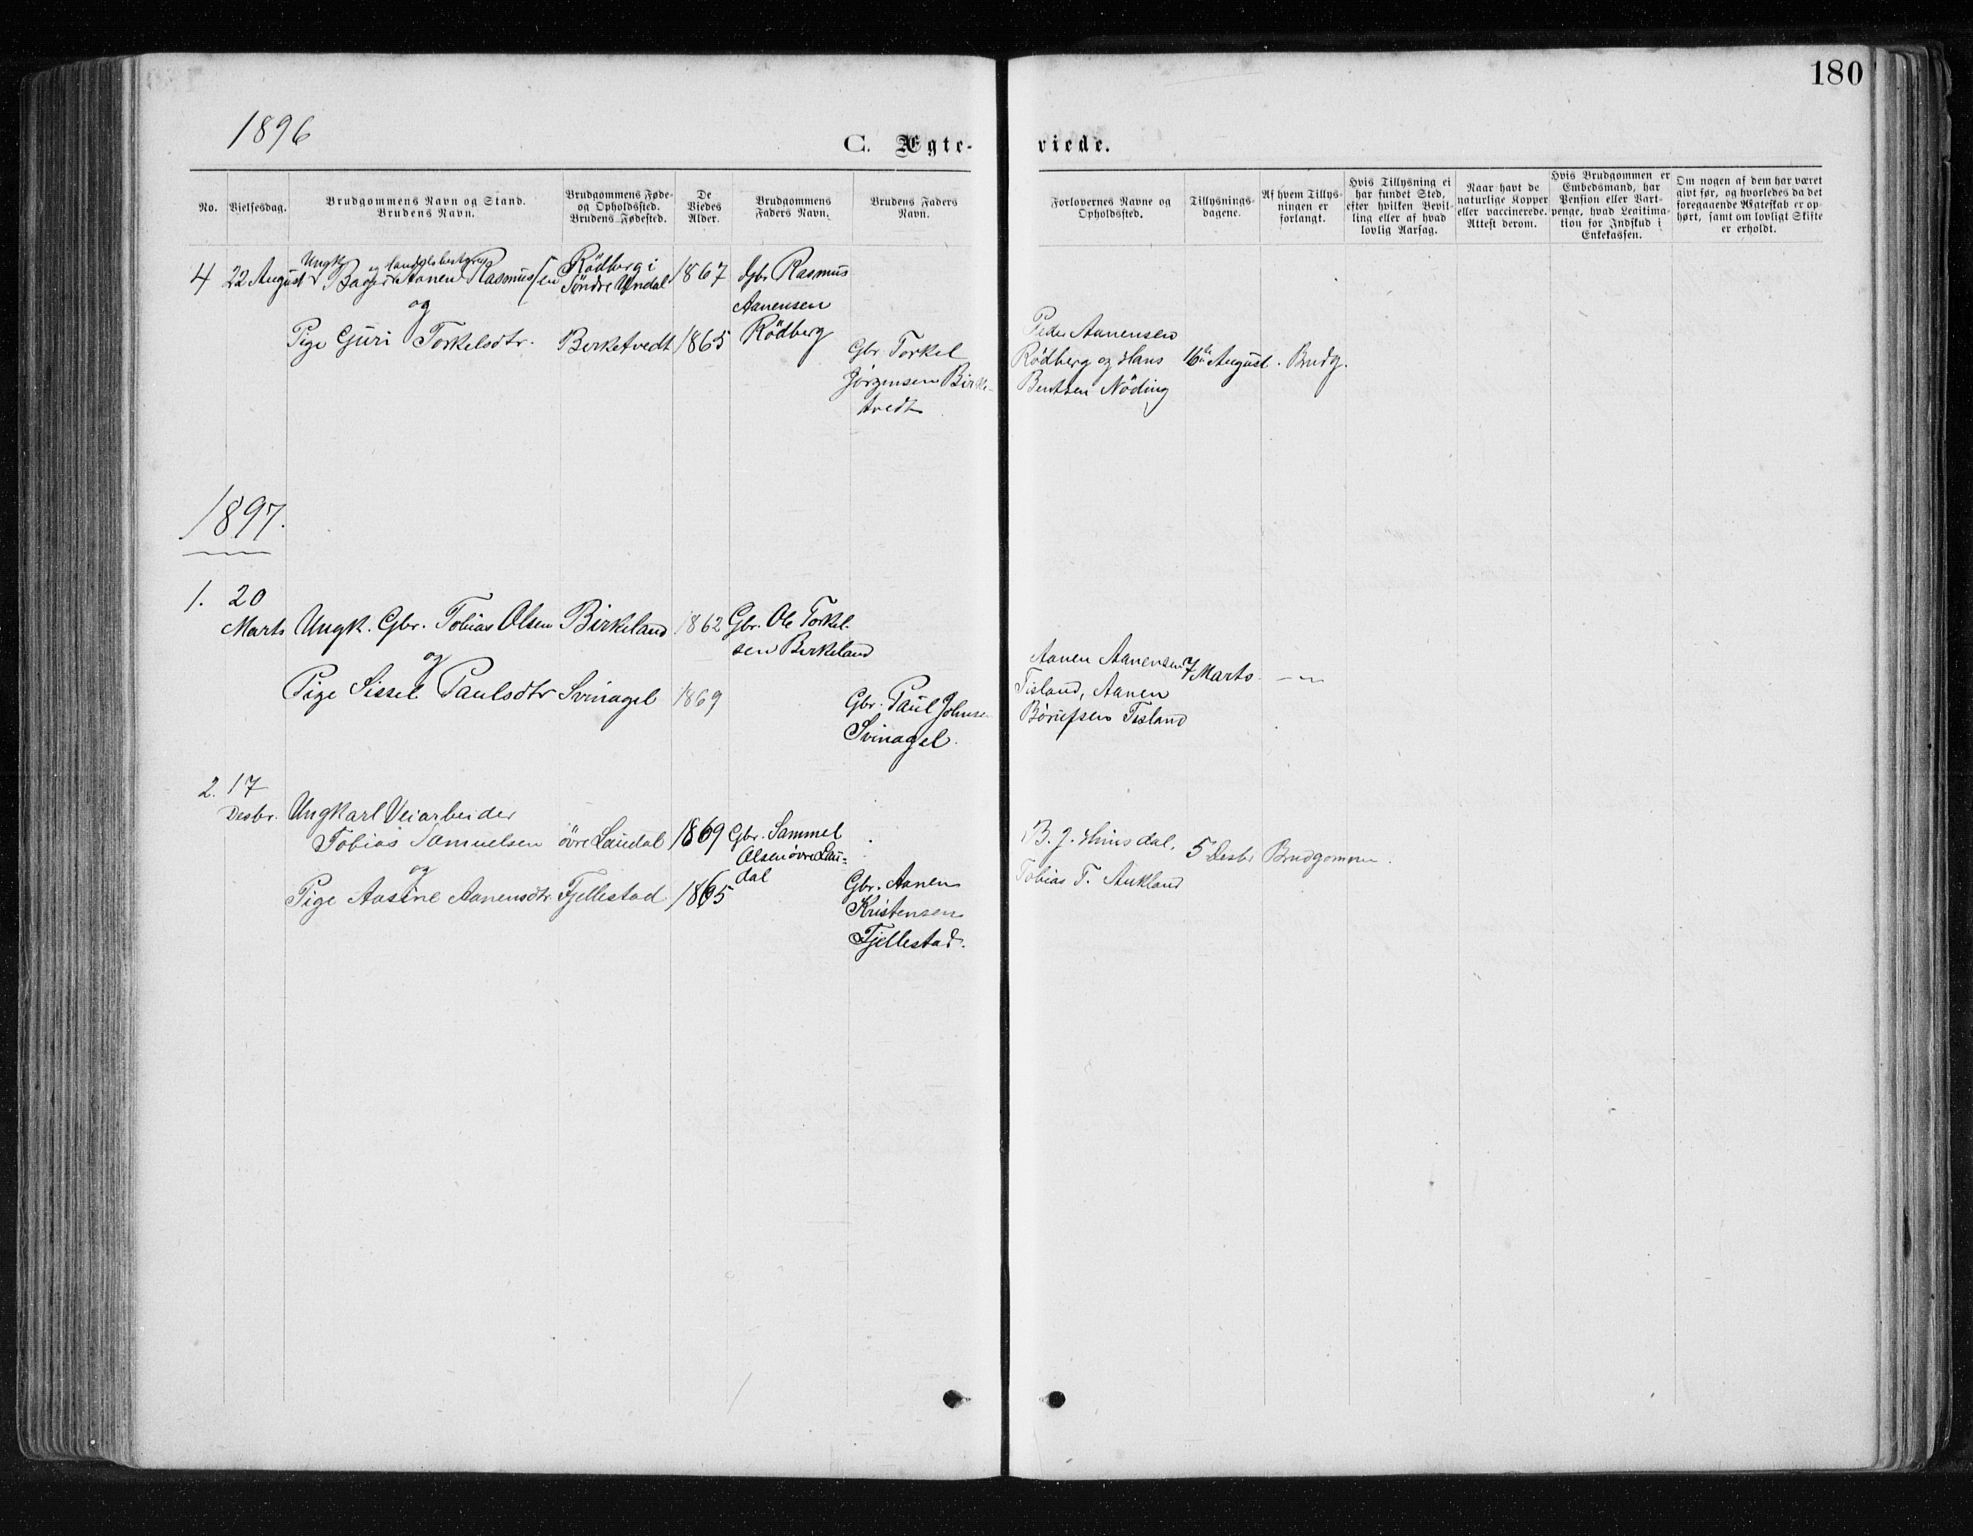 180
1896
C. Ægte-
viede.
No.
Vielsesdag.
Brudgommens Navn og Stand.
Brudens Navn.
Brudgommens Føde-
og Opholdssted.
Brudens Fødested.
De
Viedes
Alder.
Brudgommens
Faders Navn.
Brudens Faders
Navn.
Forlovernes Navne og
Opholdssted.
Tillysnings-
dagene.
Af hvem Tillys-
ningen er
forlangt.
Hvis Tillysning ei
har fundet Sted,
efter hvilken Bevil-
ling eller af hvad
lovlig Aarsag.
Naar havt de
naturlige Kopper
eller vaccinerede.
Attest derom.
Hvis Brudgommen er
Embedsmand, har
Pension eller Vart-
penge, hvad Legitima-
tion for Indskud i
Enkekassen.
Om nogen af dem har været
givt før, og hvorledes da det
foregaaende Ægteskab er op-
hørt, samt om lovligt Skifte
er erholdt.
4
22 August
Ungk. og Handelsbestyrer
Aanen Rasmussen
og
Pige Guri Torkelsdtr.
Rödberg i
Söndre Undal
Birketvedt
1867
1865
Gbr. Rasmus
Aanensen
Rödberg
Gbr. Torkel
Jörgensen Birke-
tvedt
Peder Aanensen
Rödberg og Hans
Bentsen Nöding
16de August.
Brudg.
1897.
1.
20
Marts
Ungk. Gbr. Tobias Olsen
og
Pige Sissel Paulsdtr
Birkeland
Svinagel
1862
1869
Gbr. Ole Torkel-
sen Birkeland
Gbr. Paul Johnse
Svinagel.
Aanen Aanensen
Tisland, Aanen
Tisland
7 Marts
-"-
2.
17
Desbr.
Ungkarl Veiarbeider
Tobias Samuelsen
og
Pige Aasine Aanensdtr
övre Laudal
Fjellestad
1869
1865
Gbr. Sammel
Olsen övre Lau-
dal
Gbr. Aanen
Kristensen
Fjellestad.
B. J. Hunsdal,
Tobias T. Aukland
5 Desbr
Brudgommen.